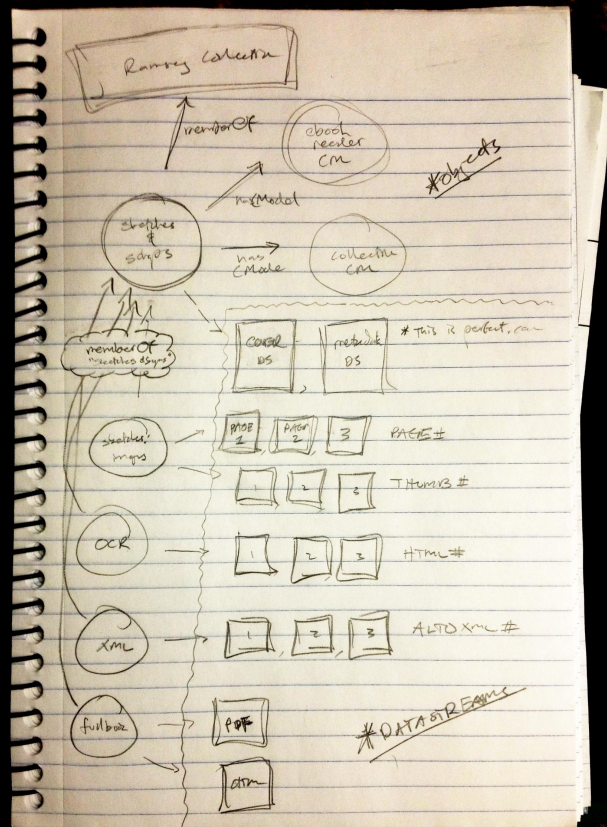 Ramsey Collection
memberOf
ebook
reader
CM
*objects
hasModel
sketches
&
scripts
has
CModel
collection
CM
memberOf
COVER
DS
metadata
DS
* This is perfect,
sketches:
imgs
PAGE
1
PAGE
2
3
PAGE#
1
2
3
THUMB#
OCR
1
2
3
HTML#
XML
1
2
3
ALTO XML #
fullbook
PDF
*DATASTREAMS